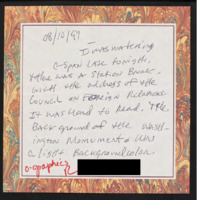 08/10/99
I was watching
C-Span late tonight.
There was a station break
with the address of the
Council on Foreign Relations
It was hard to read. The
Background of the Wash-
ington Monument was
a light Background color.
o-graphic